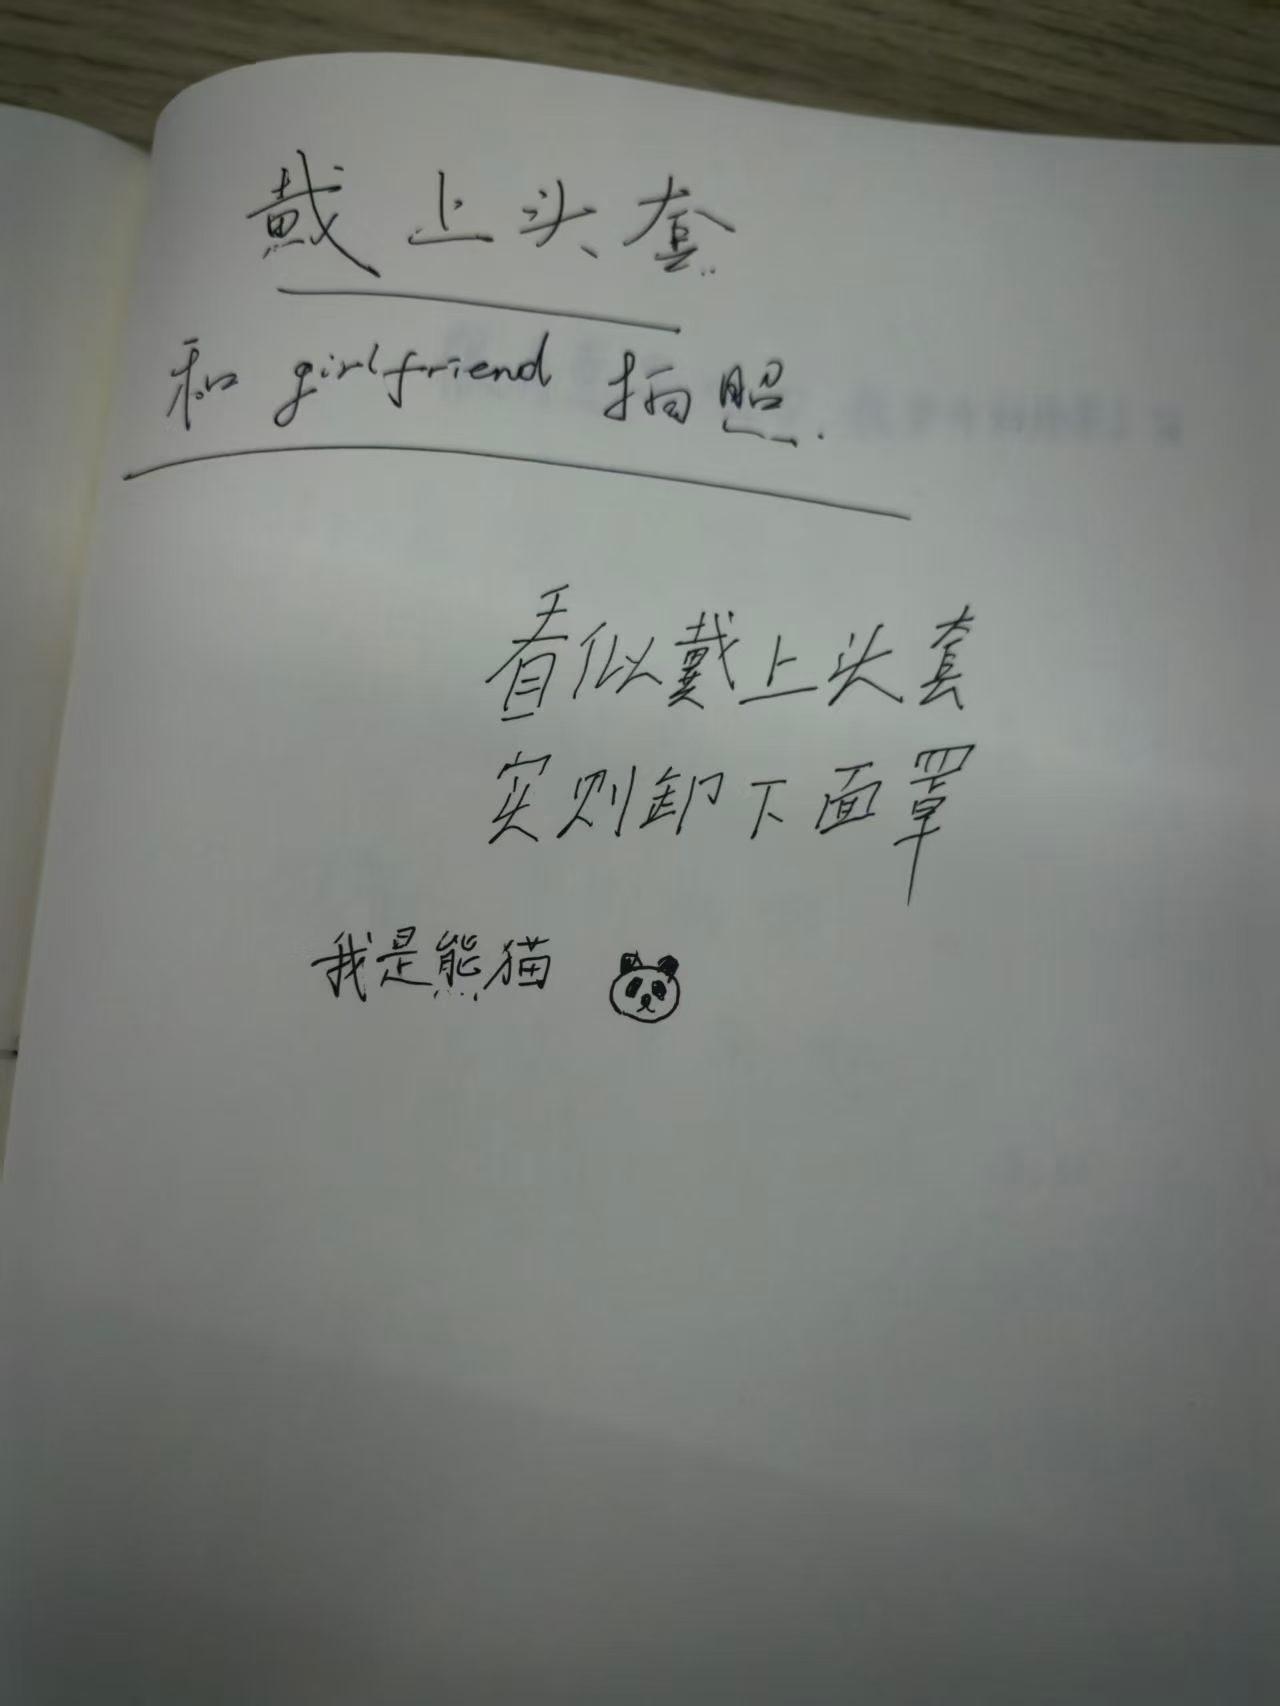 戴上头套
和 girlfriend 拍照.
看似戴上头套
实则卸下面罩
我是熊猫